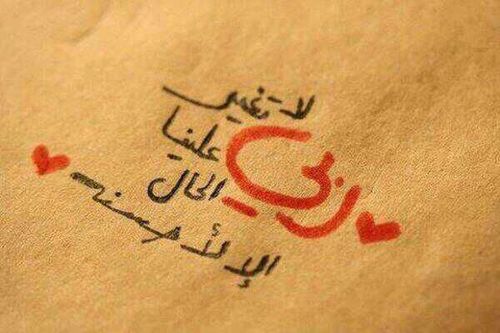 ربي
لا تغير
علينا
الحال
الإ لأحسنه